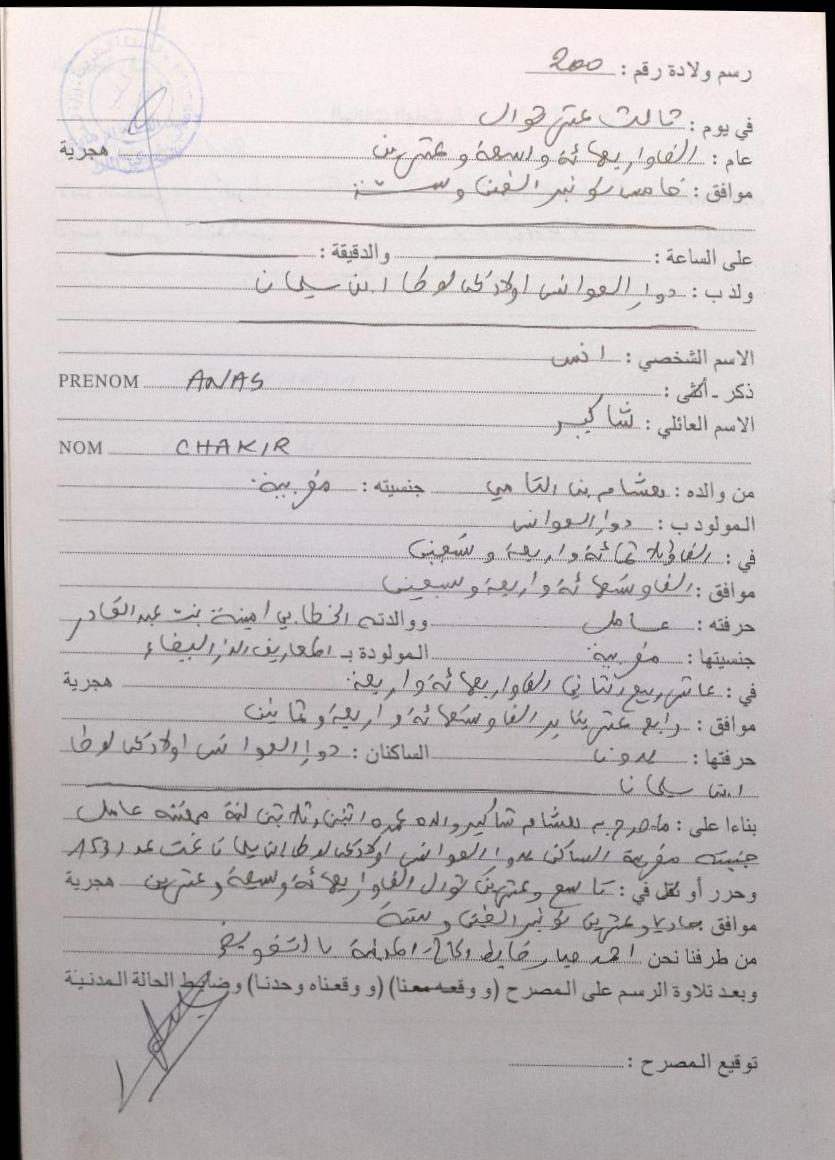 رسم ولادة رقم : 200
في يوم : ثالث عشر شوال
عام : الف واربعمائة وسبعة وعشرين هجرية
موافق : خامس نونبر الفين وستة
على الساعة : والدقيقة :
ولد ب : دوار العوانس اولاد يحي لوطا ابن سليمان
الاسم الشخصي : انس
ذكر - أنثى : PRENOM ANAS
الاسم العائلي : شاكير
NOM CHAKIR
من والده : هشام بن التامي جنسيته : مغربية
المولود ب : دوار العوانس
في : الف وثلاثمائة واربعة وتسعين
موافق : الف وتسعمائة واربعة وسبعين
حرفته : عامل ووالدته الخطابي امينة بنت عبد القادر
جنسيتها : مغربية المولودة ب المعاريف الدار البيضاء
في : عاشر ربيع الثاني الف واربعمائة واربعة هجرية
موافق : رابع عشر يناير الف وتسعمائة واربعة وثمانين
حرفتها : بدون الساكنان : دوار العوانس اولاد يحي لوطا
ابن سليمان
بناءا على : ما صرح به هشام شاكير والده عمره اثنين وثلاثين سنة مهنته عامل
جنسيته مغربية الساكن بدوار العوانس اولاد يحي لوطا ابن سليمان تحت عدد 1531
وحرر أو نقل في : تاسع وعشرين شوال الف واربعمائة وسبعة وعشرين هجرية
موافق حادي وعشرين نونبر الفين وستة
من طرفنا نحن احمد ضابط الحالة المدنية بالتفويض
وبعد تلاوة الرسم على المصرح (و وقعه معنا) (و وقعناه وحدنا) وضابط الحالة المدنية
توقيع المصرح :